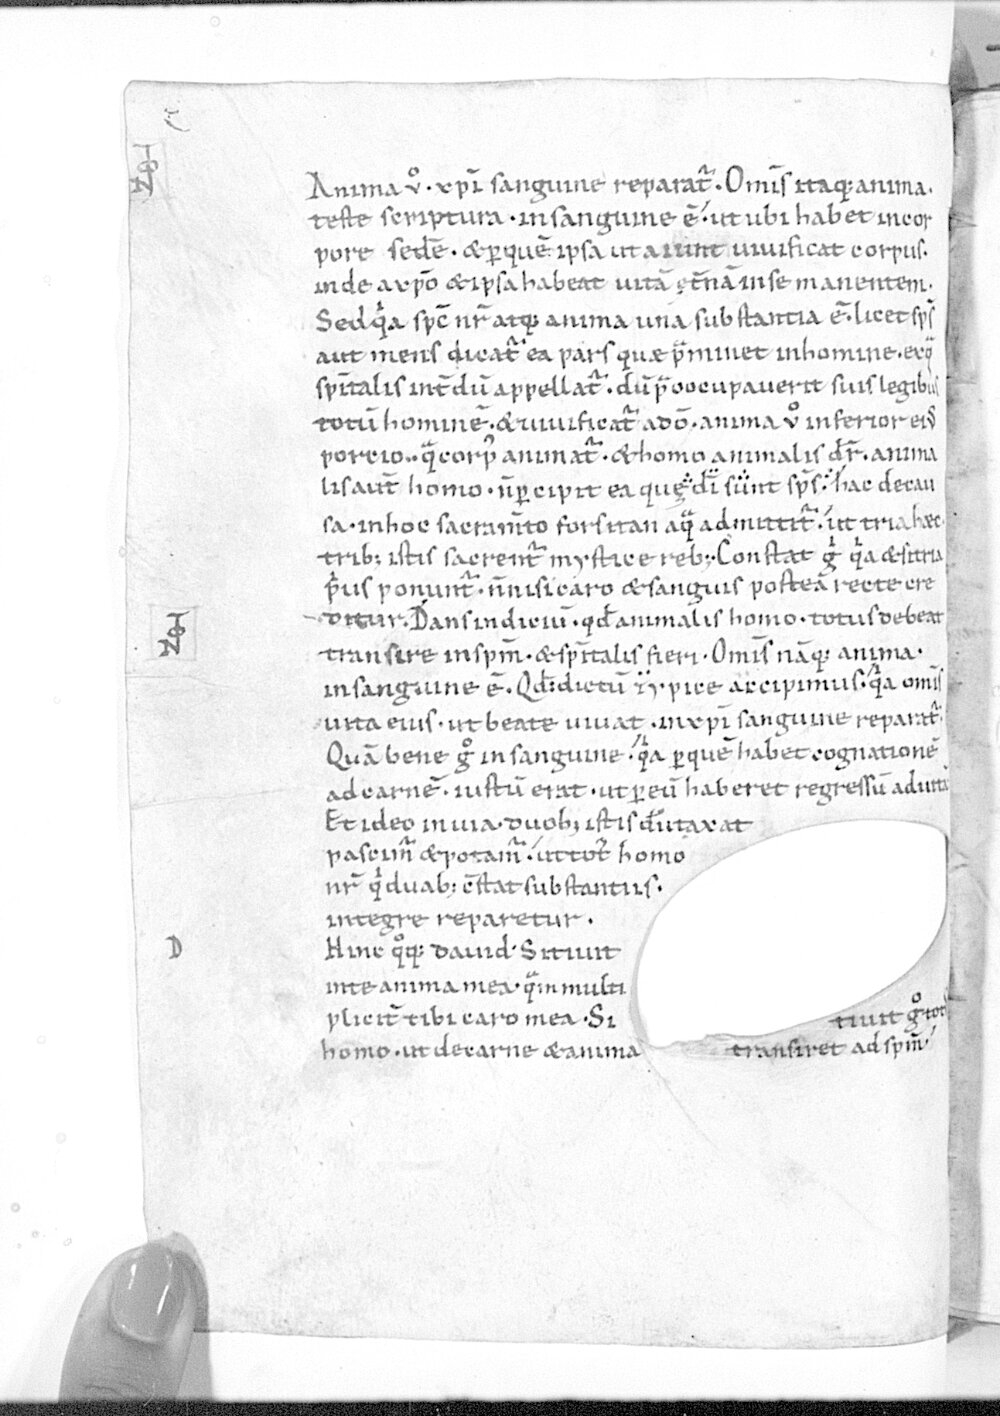 Anima v̊ · xp̄i sanguine reparat᷑ · Om̄s itaq; anima ·
teste scriptura · in sanguine ē · ut ubi habet in cor
pore sedē · & ꝑ quē ipsa ut aiunt vivificat corpus ·
inde a xp̄o & ipsa habeat vitā ęt̄nā in se manentem ·
Sed qͥa sp̄c nr̄ atq; anima una substantia ē · licet sp̄s
aut mens dicat᷑ ea pars quæ p̄minet in homine · ex qͣ
sp̄italis int̄dū appellat᷑ · dū p̄occupaverit suis legibus
totū hominē · & vivificat᷑ a dō · anima v̊ inferior eiꝰ
portio · qͣ corpꝰ animat᷑ · & homo animalis dr̄ · anima
lis aut̄ homo · n̄ ꝑcipit ea quę dī sunt sp̄s · hac de cau
sa · in hoc sacram̄to forsitan aqͣ admittit᷑ · ut tria hæc
trib; istis sacrent᷑ mystice reb; · Constat gͥ qͥa & si tria
pͥus ponunt᷑ · n̄ nisi caro & sanguis posteā recte cre
ditur · Dans indiciū · qd̄ animalis homo · totus debeat
transire in sp̄m · & sp̄italis fieri · Om̄is nāq; anima ·
in sanguine ē · Qd̄ dictū typice accipimus · qͥa om̄is
vita eius · ut beate vivat · in xp̄i sanguine reparat᷑ ·
Quā bene g̊ in sanguine · qͥa ꝑ quē habet cognationē
ad carnē · iustū erat · ut ꝑ eū haberet regressū ad vitā
Et ideo in via · duob; istis dūtaxat
pascim᷑ & potam᷑ · ut tot᷑ homo
nr̄ qͥ duab; c̄stat substantiis ·
integre reparetur ·
Hinc qͦq; david · Sitivit
in te anima mea · qͣm multi
plicit̄ tibi caro mea · Si tivit g̊ totꝰ
homo · ut de carne & anima transiret ad sp̄m ·
D